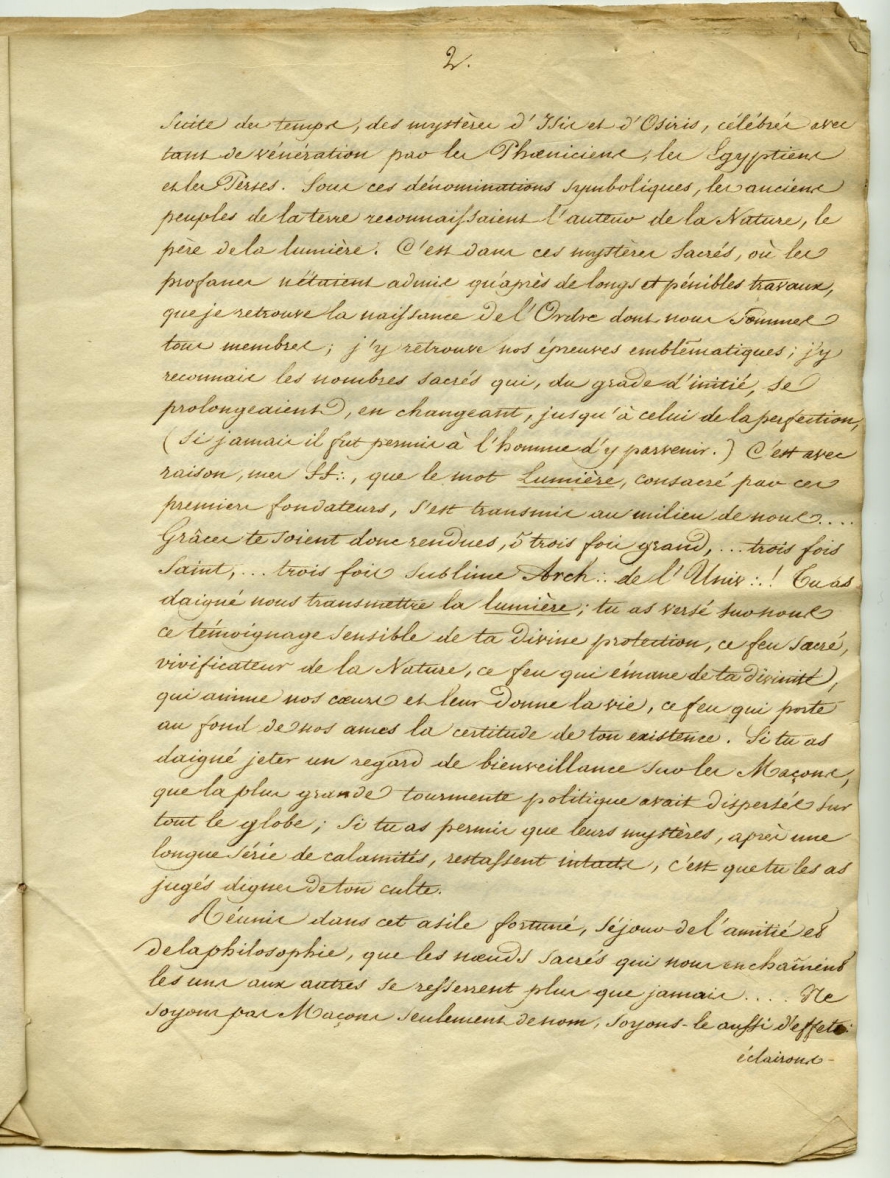 2.
suite des temps, des mystères d'Isis et d'Osiris, célébrés avec
tant de vénération par les Phœniciens, les Egyptiens
et les Perses. Sous ces dénominations symboliques, les anciens
peuples de la terre reconnaissaient l'auteur de la Nature, le
père de la lumière. C'est dans ces mystères sacrés, où les
profanes n'étaient admis qu'après de longs et pénibles travaux,
que je retrouve la naissance de l'Ordre dont nous sommes
tous membres; j'y retrouve nos épreuves emblèmatiques; j'y
reconnais les nombres sacrés qui, du grade d'initié, se
prolongeaient, en changeant, jusqu'à celui de la perfection,
(si jamais il fut permis à l'homme d'y parvenir.) C'est avec
raison, mes ff∴, que le mot Lumière, consacré par ces
premiers fondateurs, s'est transmis au milieu de nous....
Grâces te soient donc rendues, ô trois fois grand,... trois fois
Saint,... trois fois sublime Arch∴ de l'Univ∴! Tu as
daigné nous transmettre la lumière; tu as versé sur nous
ce témoignage sensible de ta divine protection, ce feu sacré,
vivificateur de la Nature, ce feu qui émane de ta divinité,
qui anime nos cœurs et leur donne la vie, ce feu qui porte
au fond de nos ames la certitude de ton existence. Si tu as
daigné jeter un regard de bienveillance sur les Maçons,
que la plus grande tourmente politique avait dispersés sur
tout le globe; si tu as permis que leurs mystères, après une
longue série de calamités, restassent intacts, c'est que tu les as
jugés dignes de ton culte.
Réunis dans cet asile fortuné, séjour de l'amitié et
de la philosophie, que les nœuds sacrés qui nous enchaînent
les uns aux autres se resserrent plus que jamais.... Ne
soyons pas Maçons seulement de nom, soyons-le aussi d'effets:
éclairons-